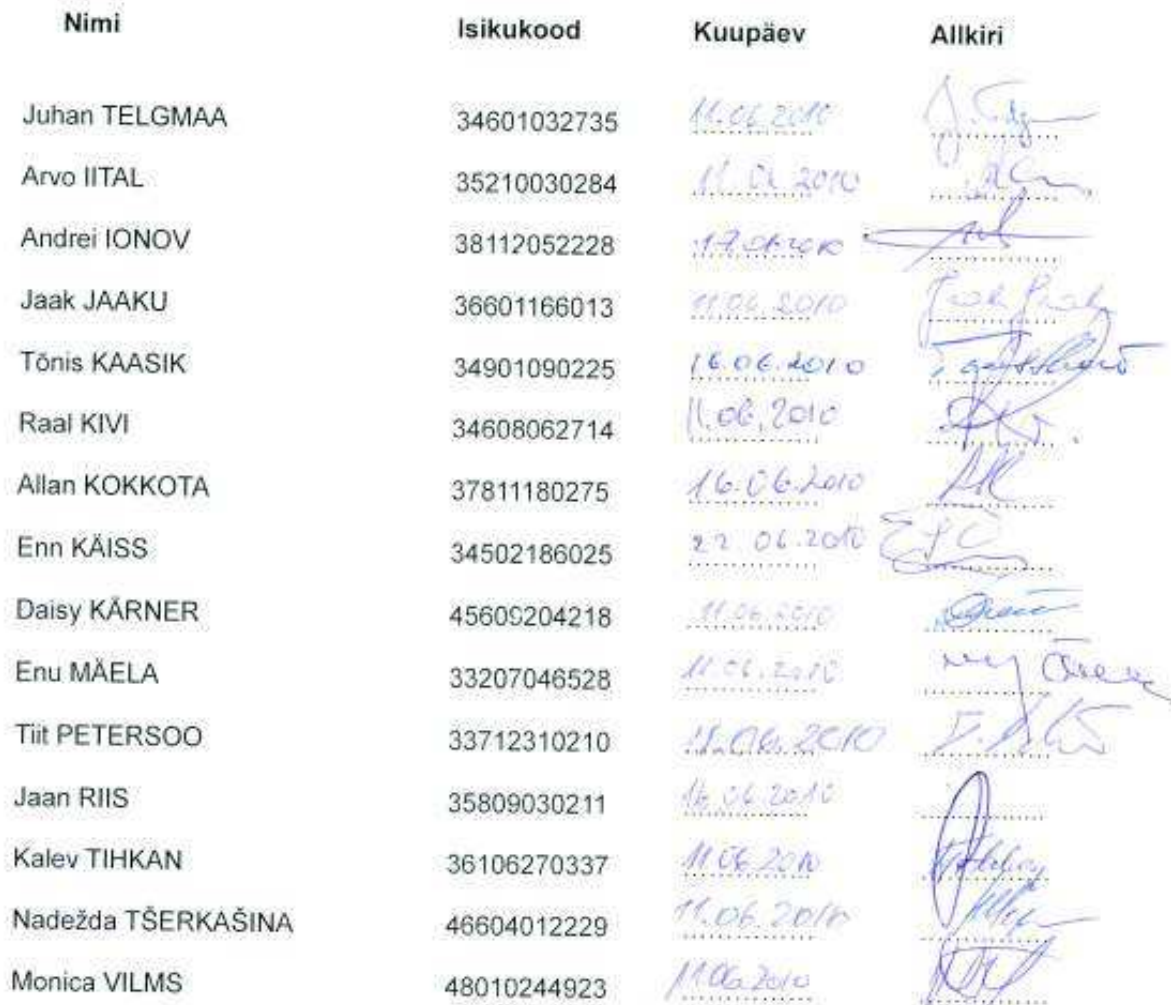 Nimi Isikukood Kuupäev Allkiri
Juhan TELGMAA 34601032735 11.06.2010
Arvo IITAL 35210030284 11.06.2010
Andrei IONOV 38112052228
Jaak JAAKU 36601166013 11.06.2010
Tõnis KAASIK 34901090225 16.06.2010
Raal KIVI 34608062714 11.06.2010
Allan KOKKOTA 37811180275 16.06.2010
Enn KÄISS 34502186025 22.06.2010
Daisy KÄRNER 45609204218 11.06.2010
Enu MÄELA 33207046528 11.06.2010
Tiit PETERSOO 33712310210 11.06.2010
Jaan RIIS 35809030211 16.06.2010
Kalev TIHKAN 36106270337 11.06.2010
Nadežda TŠERKAŠINA 46604012229 11.06.2010
Monica VILMS 48010244923 11.06.2010